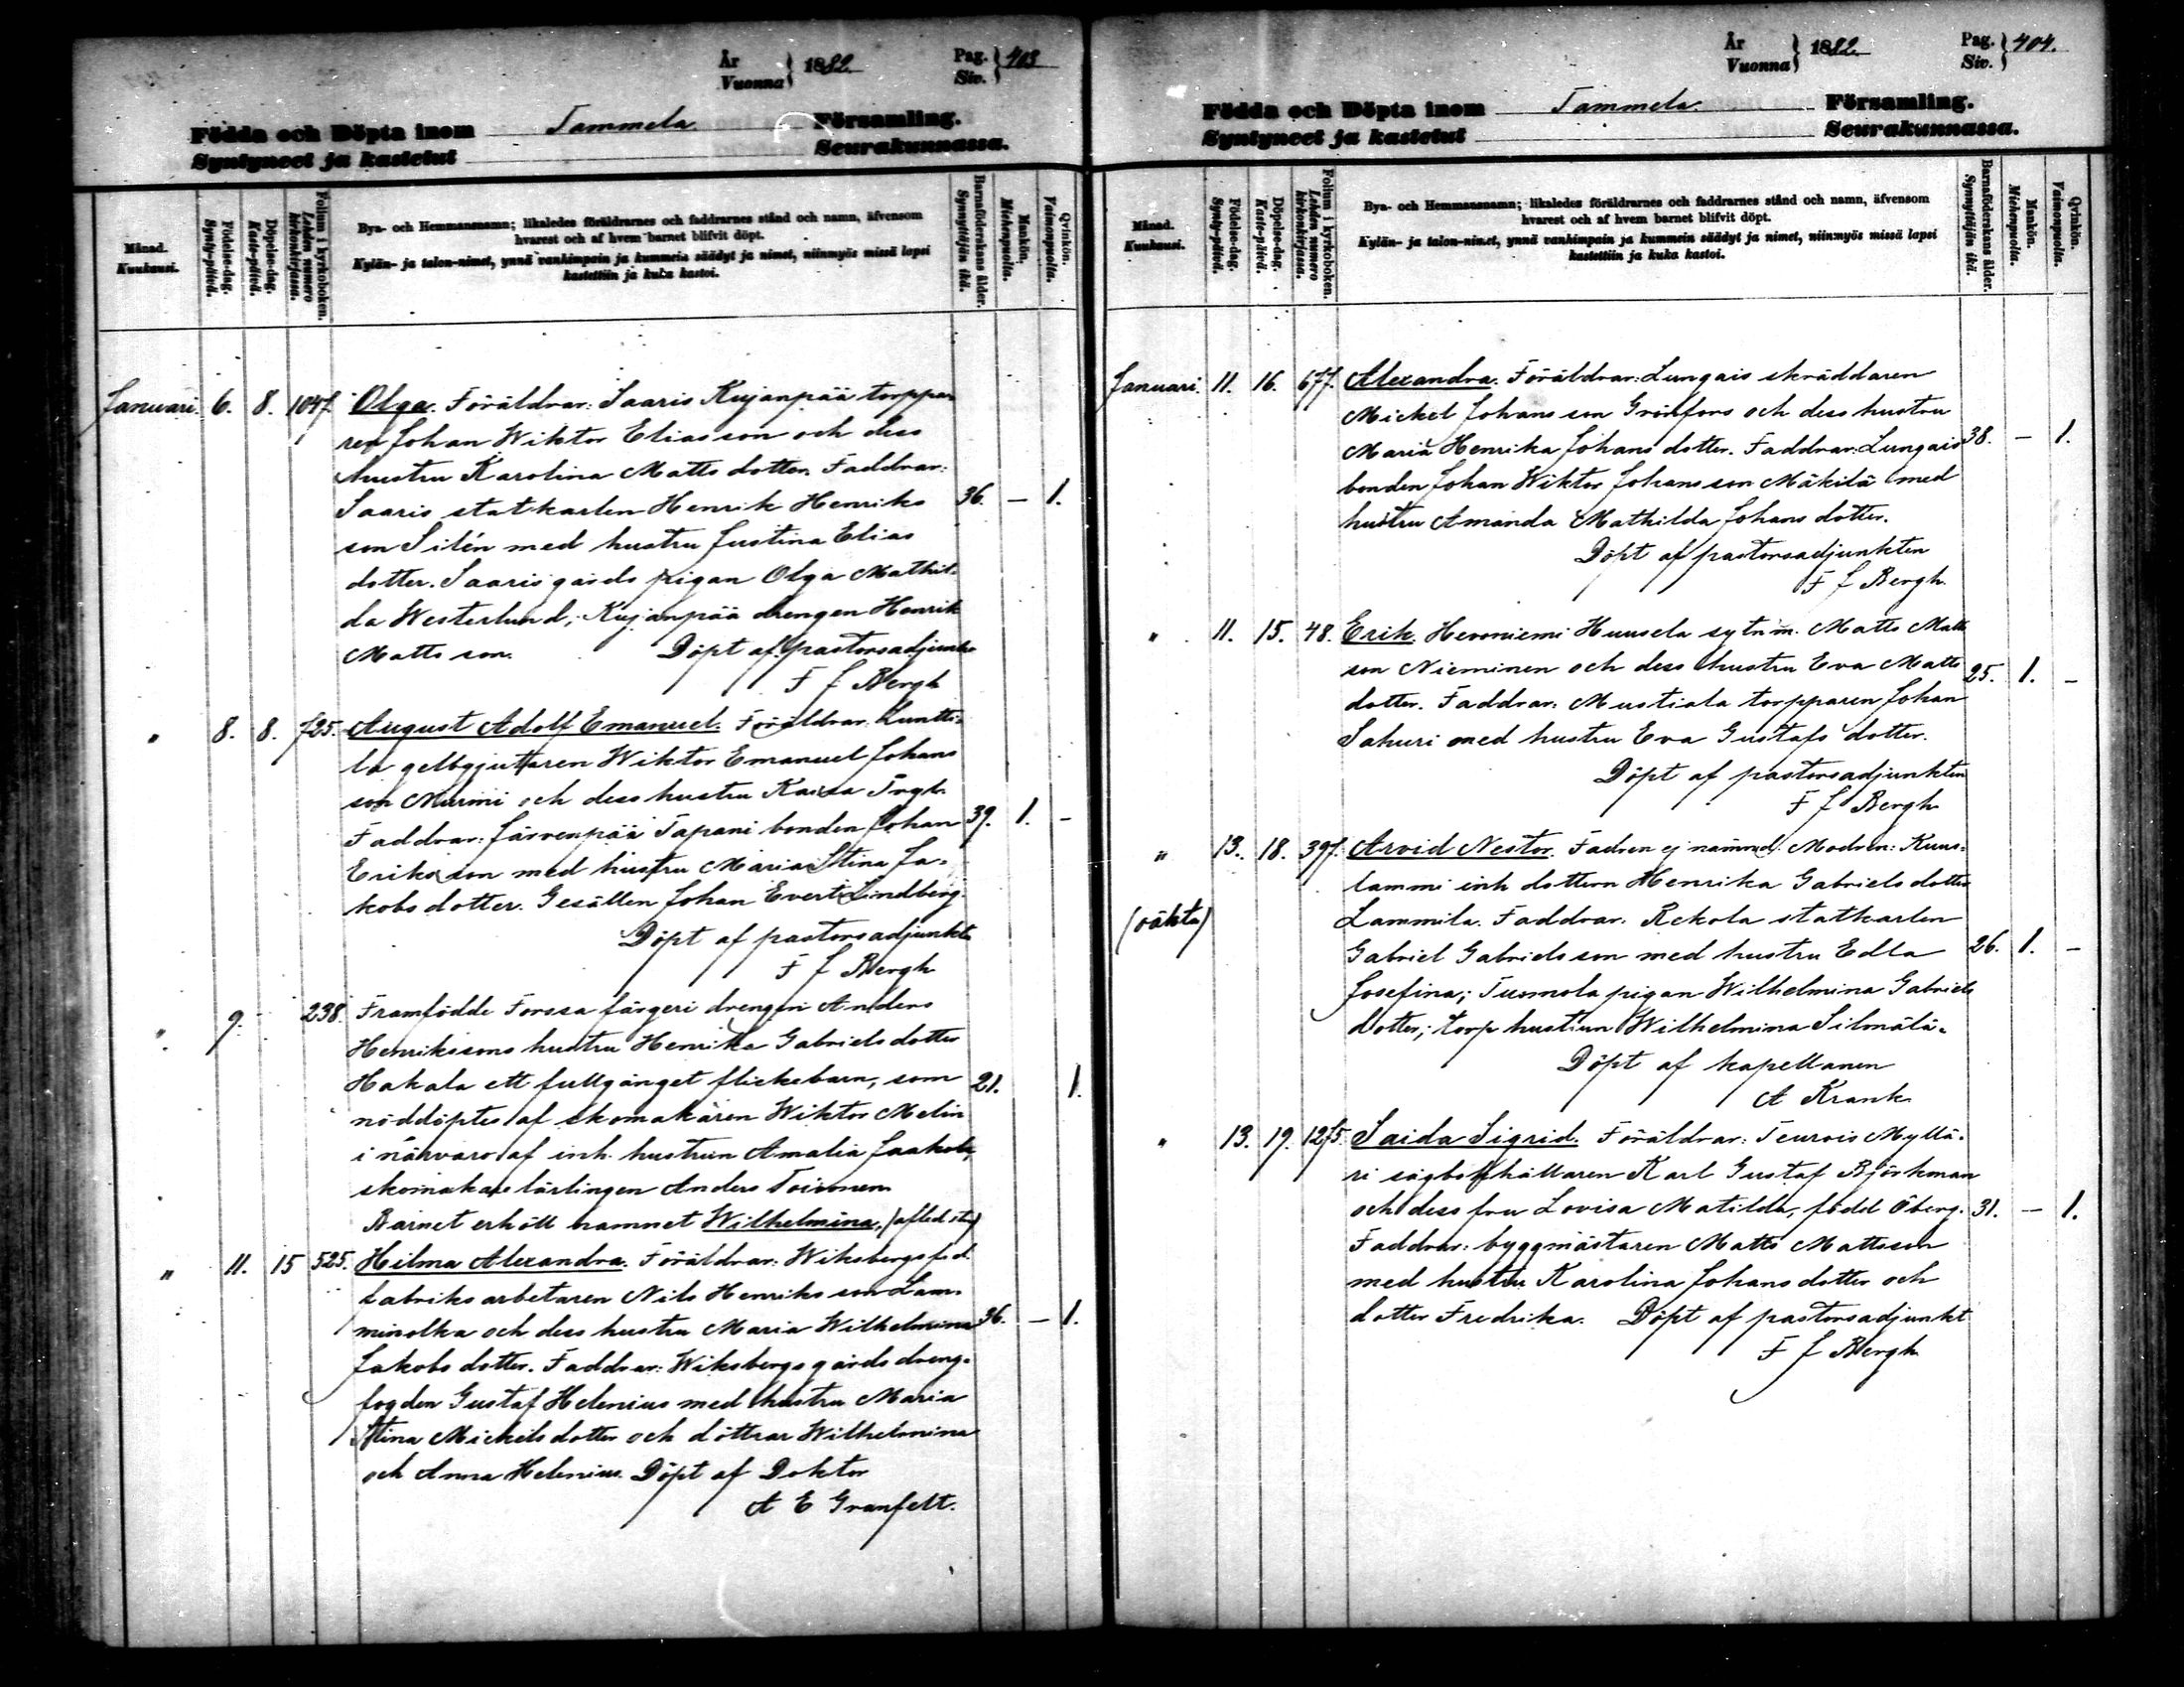 År
Vuonna } 1882.
Pag.
Siv. } 403
Födda och Döpta inom Tammela Församling.
Syntyneet ja kastetut Seurakunnassa.
Månad.
Kuukausi.
Födelse-dag.
Synty-päivä.
Döpelse-dag.
Kaste-päivä.
Folium i kyrkoboken.
Lehden numero kirkonkirjassa.
Bya- och Hemmansnamn; likaledes föräldrarnes och faddrarnes stånd och namn, äfvensom
hvarest och af hvem barnet blifvit döpt.
Kylän- ja talon-nimet, ynnä vanhimpain ja kummein säädyt ja nimet, niinmyös missä lapsi
kastettiin ja kuka kastoi.
Barnaföderskans ålder.
Synnyttäjän ikä.
Mankön.
Miehenpuolta.
Qvinkön.
Vaimonpuolta.
Januari. 6. 8. 104f. Olga. Föräldrar: Saaris Kujanpää torppa-
ren Johan Wiktor Eliasson och dess
hustru Karolina Matts dotter. Faddrar:
Saaris statkarlen Henrik Henriks 36. — 1.
son Silén med hustru Justina Elias
dotter. Saaris gårds pigan Olga Mathil-
da Westerlund; Kujanpää drengen Henrik
Matts son. Döpt af pastorsadjunkt
F J Bergh
" 8. 8. f25. August Adolf Emanuel. Föräldrar. Kuntti-
la gelbgjuttaren Wiktor Emanuel Johans
son Murmi och dess hustru Kaisa
Faddrar: Järvenpää Tapani bonden Johan 39. 1. —
Eriks son med hustru Maria Stina Ja-
kobs dotter. Gesällen Johan Evert Lindberg.
Döpt af pastorsadjunkt
F J Bergh
" 9. 238. Framfödde Forssa färgeri drengen Anders
Henrikssons hustru Henrika Gabriels dotter
Hakala ett fullgånget flickebarn, som 21. 1.
nöddöptes af skomakaren Wiktor Melin
i närvaro af inh. hustrun Amalia Jaakola,
skomakare lärlingen Anders Toivonen
Barnet erhöll namnet Wilhelmina,
" 11. 15 525. Hilma Alexandra. Föräldrar: Wiksbergs
fabriks arbetaren Nils Henriks son Lam-
minolka och dess hustru Maria Wilhelmina 36. — 1.
Jakobs dotter. Faddrar: Wiksbergs gårds dreng-
fogden Gustaf Helenius med hustru Maria
Stina Mickels dotter och döttrar Wilhelmina
och Anna Helenius. Döpt af Doktor
A E Granfelt.
År
Vuonna } 1882.
Pag.
Siv. } 404.
Födda och Döpta inom Tammela. Församling.
Syntyneet ja kastetut Seurakunnassa.
Månad.
Kuukausi.
Födelse-dag.
Synty-päivä.
Döpelse-dag.
Kaste-päivä.
Folium i kyrkoboken.
Lehden numero kirkonkirjassa.
Bya- och Hemmansnamn; likaledes föräldrarnes och faddrarnes stånd och namn, äfvensom
hvarest och af hvem barnet blifvit döpt.
Kylän- ja talon-nimet, ynnä vanhimpain ja kummein säädyt ja nimet, niinmyös missä lapsi
kastettiin ja kuka kastoi.
Barnaföderskans ålder.
Synnyttäjän ikä.
Mankön.
Miehenpuolta.
Qvinkön.
Vaimonpuolta.
Januari. 11. 16. 67f. Alexandra. Föräldrar: Lungais skräddaren
Mickel Johans son Grönfors och dess hustru
Maria Henrika Johans dotter. Faddrar: Lungais 38. — 1.
bonden Johan Wiktor Johans son Mäkilä med
hustru Amanda Mathilda Johans dotter.
Döpt af pastorsadjunkten
F J Bergh.
" 11. 15. 48. Erik. Hevoniemi Huusela sytn.m. Matts Matts
son Nieminen och dess hustru Eva Matts
dotter. Faddrar: Mustiala torpparen Johan 25. 1. —
Sakuri med hustru Eva Gustafs dotter.
Döpt af pastorsadjunkten
F J Bergh
" 13. 18. 39f. Arvid Nestor. Fadren ej nämnd. Modren: Kuus-
lammi inh dottern Henrika Gabriels dotter
(oäkta) Lammila. Faddrar. Rekola statkarlen
Gabriel Gabriels son med hustru Edla 26. 1. —
Josefina; Tuomola pigan Wilhelmina Gabriels
dotter; torp hustrun Wilhelmina Silmälä.
Döpt af kapellanen
A Krank
" 13. 19. 12f5. Saida Sigrid. Föräldrar: Teurois Myllä-
ri sågbokhållaren Karl Gustaf Björkman
och dess fru Lovisa Matilda, född Öberg. 31. — 1.
Faddrar: byggmästaren Matts Mattsson
med hustru Karolina Johans dotter och
dotter Fredrika. Döpt af pastorsadjunkt
F J Bergh